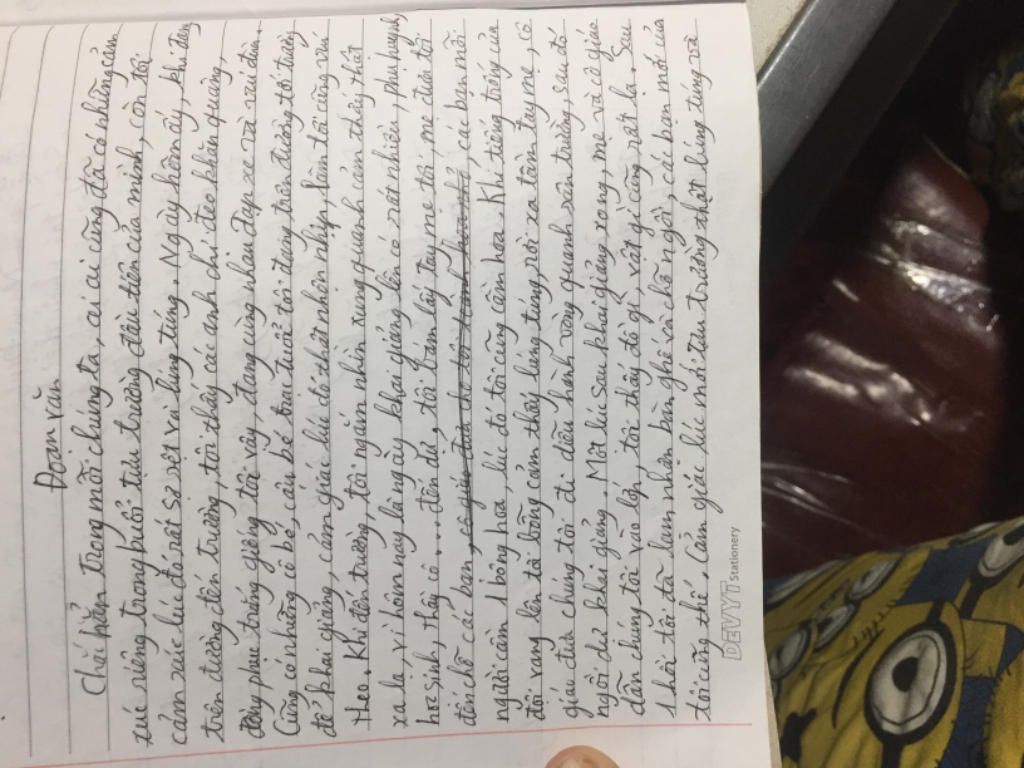 Đoạn văn
Chắc hẳn trong mỗi chúng ta, ai ai cũng đã có những cảm
xúc riêng trong buổi tựu trường đầu tiên của mình, còn tôi
cảm xúc lúc đó rất sợ sệt và lúng túng. Ngày hôm ấy, khi đang
trên đường đến trường, tôi thấy các anh chị đeo khăn quàng,
đồng phục trắng giống tôi vậy, đang cùng nhau đạp xe và vui đùa.
Cũng có những cô bé, cậu bé trạc tuổi tôi đang trên đường tới trường
để khai giảng, cảm giác lúc đó thật nhộn nhịp, làm tôi cũng vui
theo. Khi đến trường, tôi ngắm nhìn xung quanh cảm thấy thật
xa lạ, vì hôm nay là ngày khai giảng lên có rất nhiều, phụ huynh,
học sinh, thầy cô .... đến dự, tôi bám lấy tay mẹ tôi, mẹ đưa tôi
đến chỗ các bạn, cô giáo đưa cho tôi, các bạn mỗi
người cầm 1 bông hoa, lúc đó tôi cũng cầm hoa. Khi tiếng trống của
đội vang lên tôi bỗng cảm thấy lúng túng, rời xa tầm tay mẹ, cô
giáo đưa chúng tôi đi diễu hành vòng quanh sân trường, sau đó
ngồi dự khai giảng. Một lúc sau khai giảng xong, mẹ và cô giáo
dẫn chúng tôi vào lớp, tôi thấy đồ gì, vật gì cũng rất lạ. Sau
1 hồi tôi đã làm nhận bàn ghế và chỗ ngồi, cái bạn mới của
tôi cũng thế. Cảm giác lúc mới tựu trường thật lúng túng và
DEVYT Stationery